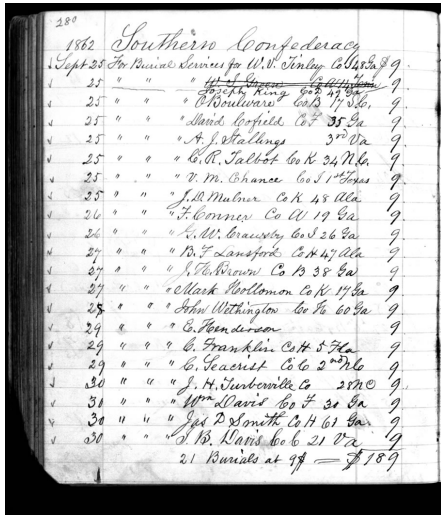 280
1862 Southern Confederacy
Sept 25 For Burial Services for W. V. Tinley Co I 48 Ga $ 9
25 " " " W. T. Green Co A 14 Tenn
Joseph King Co D 49 Ga 9
25 " " " O Boulware Co B 17 S.C. 9
25 " " " David Cofield Co F 35 Ga 9
25 " " " A. J. Stallings 3rd Va 9
25 " " " C. R. Talbot Co K 34 N.C. 9
25 " " " V. M. Chance Co I 1st Texas 9
25 " " " J. D. Mulner Co K 48 Ala 9
26 " " " F. Conner Co A 19 Ga 9
26 " " " G. W. Crawsby Co I 26 Ga 9
27 " " " B. F Lansford Co H 47 Ala 9
27 " " " J. H. Brown Co B 38 Ga 9
27 " " " Mark Hollomon Co K 17 Ga 9
28 " " " John Wethington Co H 60 Ga 9
29 " " " E. Henderson 9
29 " " " C. Franklin Co H 5 Fla 9
29 " " " C. Seacrist Co C 2nd N C 9
30 " " " J. H. Turberville Co 28 N C 9
30 " " " Wm Davis Co F 31 Ga 9
30 " " " Jas D Smith Co H 61 Ga. 9
30 " " " J. B. Davis Co C 21 Va 9
21 Burials at 9$ = $189